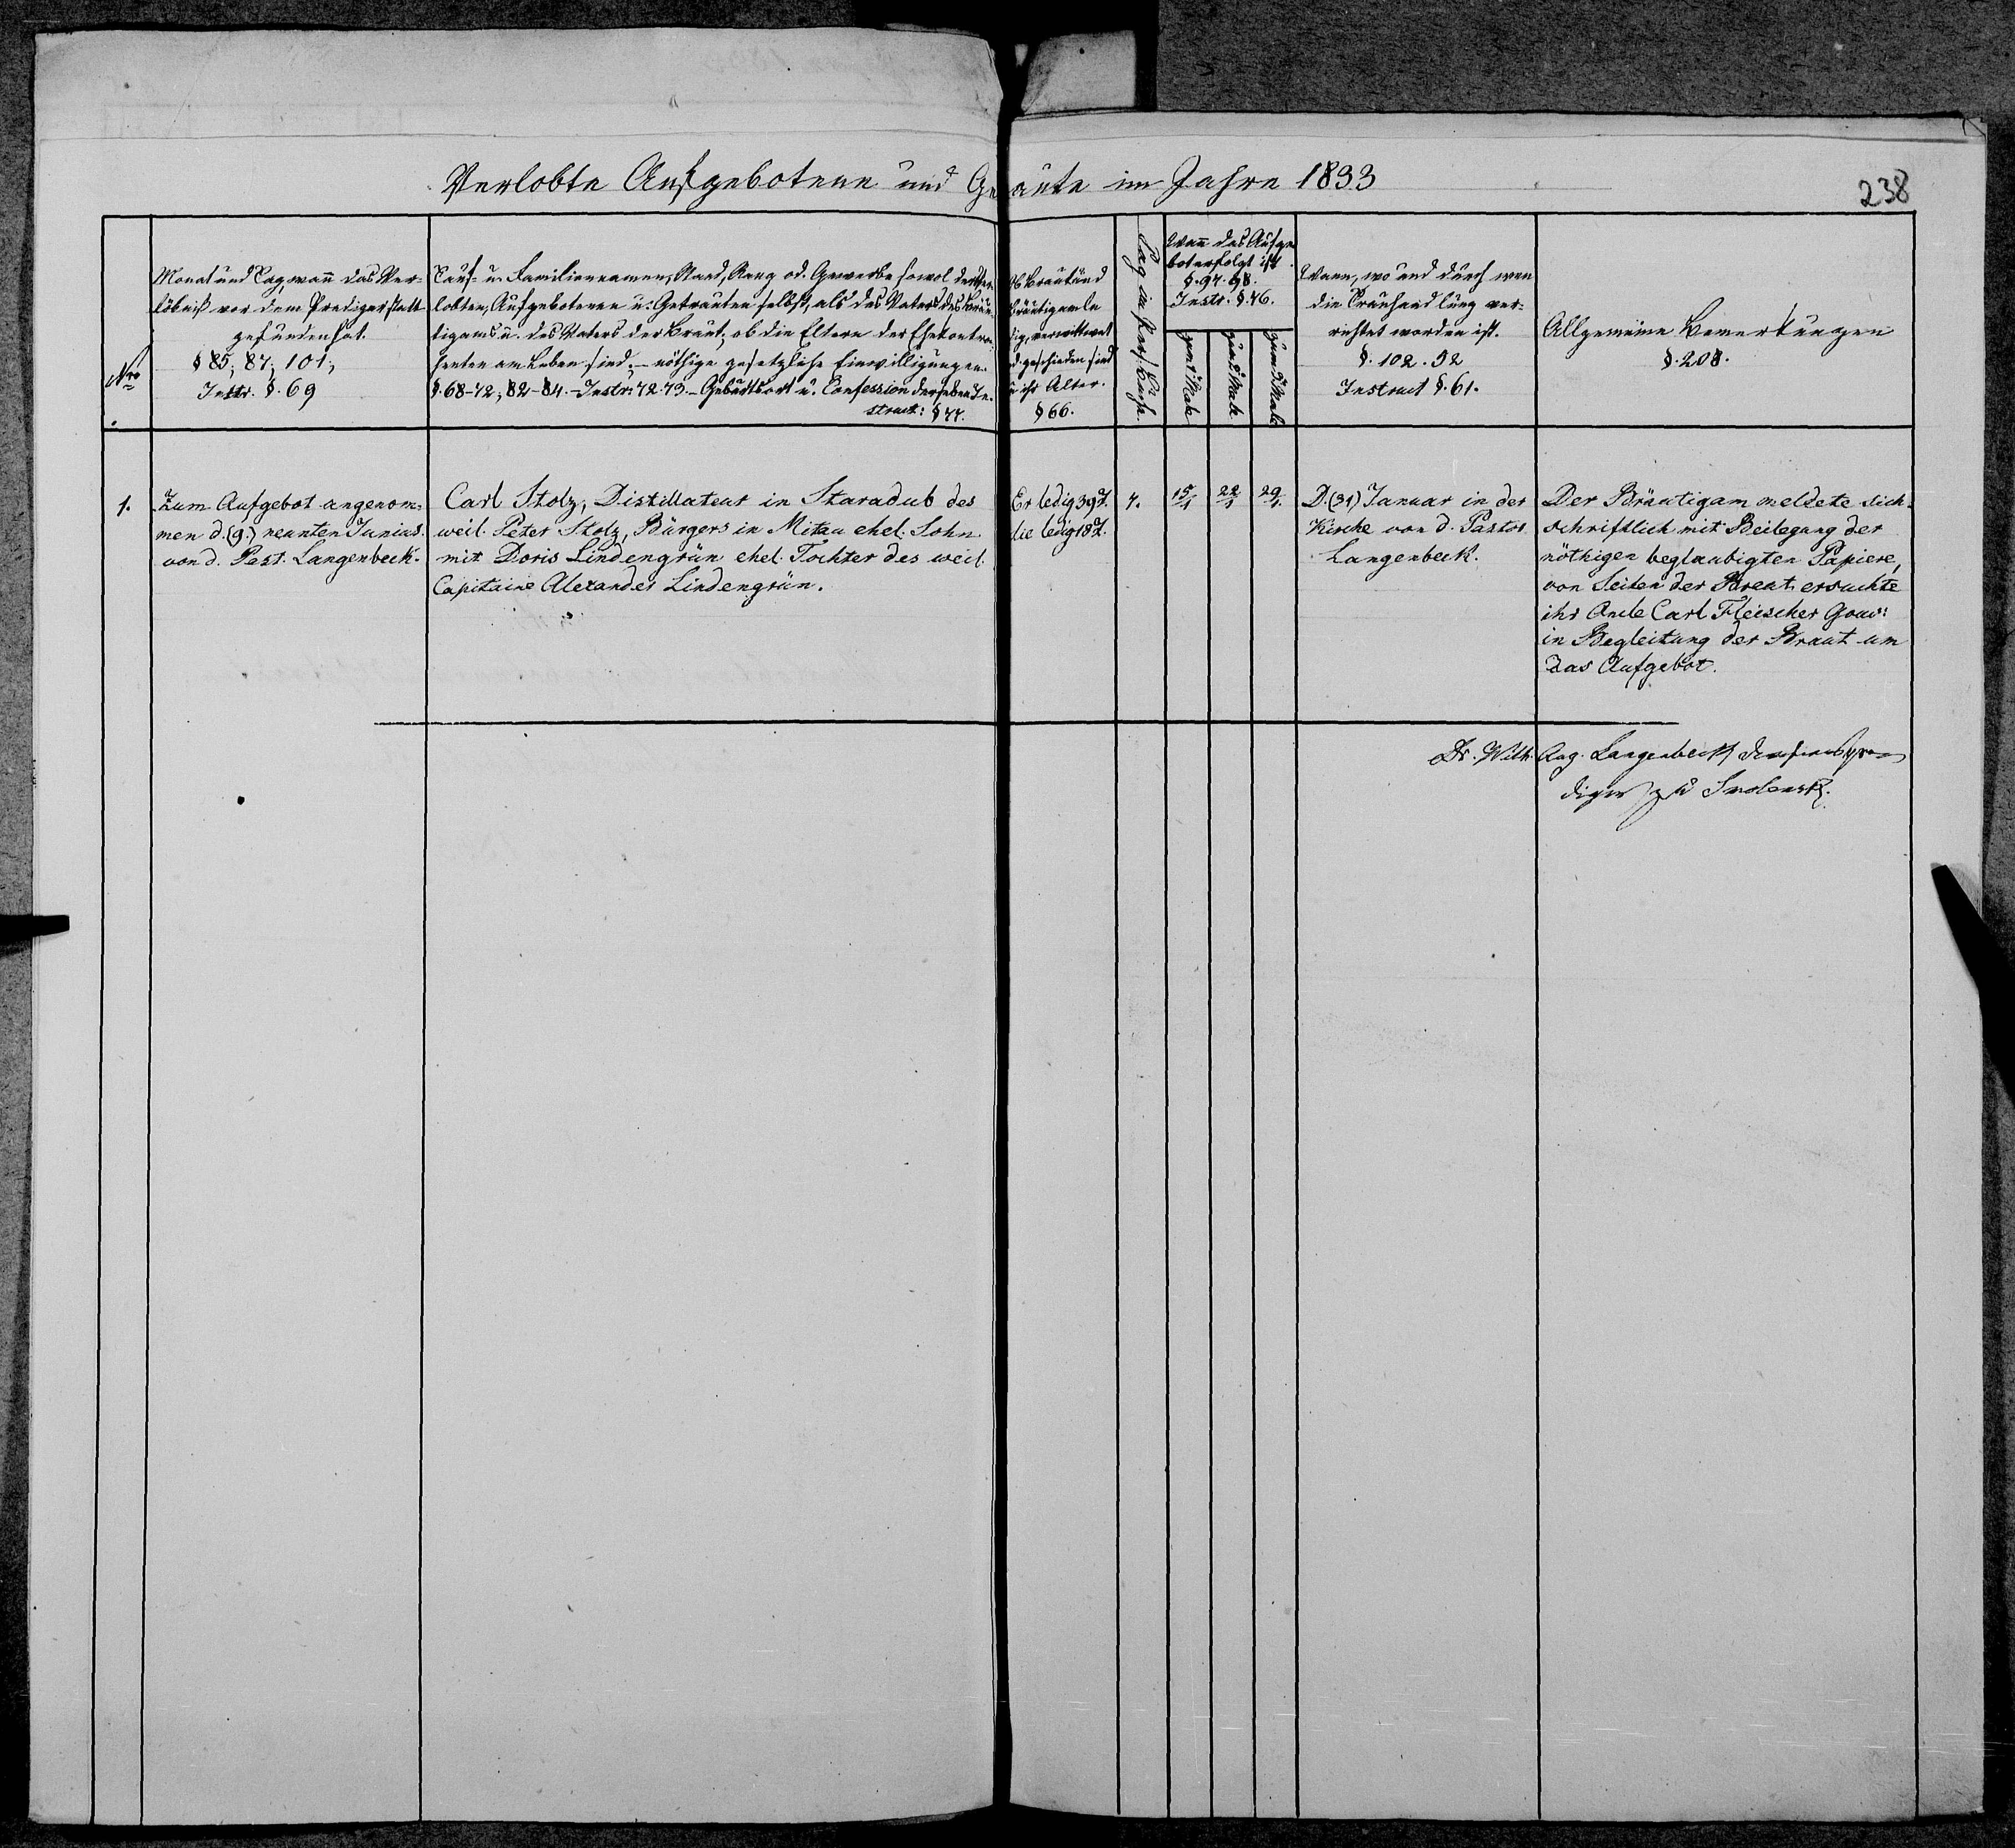 Verlobte Aufgebotene und Ge aute im Jahre 1833
238
Nro
Monat und Tag, wañ das Ver-
löbniß vor dem Prediger statt
gefunden hat.
§ 85, 87, 101,
Instr. §. 69
Tauf- u. Familiennamen, Stand, Rang od. Gewerbe sowol der Ver-
lobten, Aufgebotenen u. Getrauten selbst, als des Vaters des Bräu-
tigams u. des Vaters der Braut, ob die Eltern der Ehekontra-
henten am Leben sind, – nöthige gesetzliche Einwilligungen.
§. 68-72, 82-84. - Instr: 72-73. - Geburtsort u. Confession derselben In-
struct: § 77.
Ob Braut und
Bräutigam le
dig, verwittwet
od geschieden sind
u ihr Alter.
§ 66.
Tag in Pers. Buche.
Wañ das Aufge
bot erfolgt ist
§. 97. 98.
Instr. §. 76.
zum 1 Male
zum 2 Male
zum 3 Male
Wann, wo und durch wen
die Trauhandlung ver-
richtet worden ist.
§. 102. 92
Instruct §. 61.
Allgemeine Bemerkungen
§. 208.
1.
Zum Aufgebot angenom-
men d. (9.) neunten Januar
von d. Past. Langenbeck.
Carl Stolz, Distillateur in Staradub des
weil. Peter Stolz, Bürgers in Mitau ehel. Sohn
mit Doris Lindengrün ehel. Tochter des weil.
Capitaine Alexander Lindengrün.
Er ledig 39 J.
sie ledig 18 J.
7.
15/1
22/1
29/1
D. (31) Januar in der
Kirche von d. Pastor
Langenbeck.
Der Bräutigam meldete sich
schriftlich mit Beilegung der
nöthigen beglaubigten Papiere,
von Seiten der Braut ersuchte
ihr Oncle Carl Fleischer Gouv:
in Begleitung der Braut um
das Aufgebot.
Dr. Wilh. Aug. Langenbeck
diger zu Smolensk.